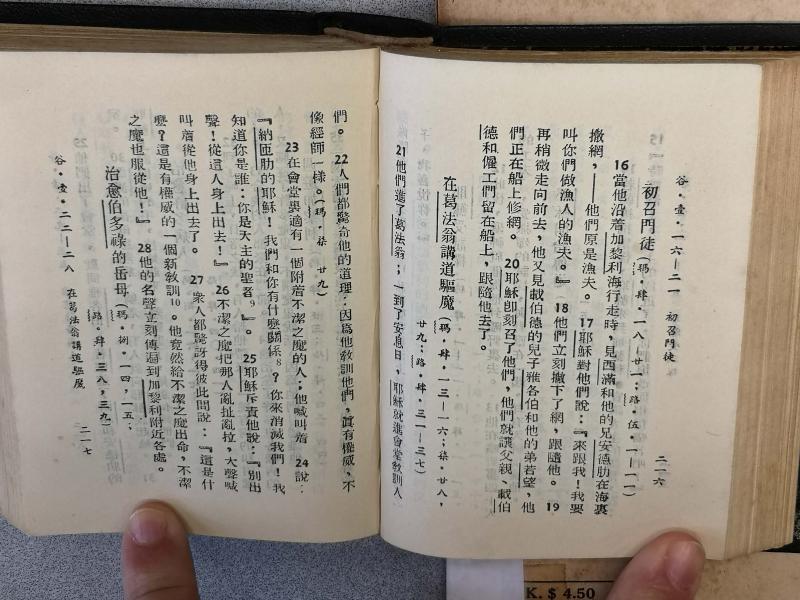 谷·壹·一六—二一 初召門徒 二一六
初召門徒（瑪·肆·一八—廿一；路·伍·一—一一）
16當他沿着加黎利海行走時，見西滿和他的兄安德肋在海裏
撒網，——他們原是漁夫。 17耶穌對他們說：『來跟我！我要
叫你們做漁人的漁夫。』 18他們立刻撇下了網，跟隨他。 19
再稍微走向前去，他又見載伯德的兒子雅各伯和他的弟若望，他
們正在船上修網。 20耶穌即刻召了他們，他們就讓父親、載伯
德和僱工們留在船上，跟隨他去了。
在葛法翁講道驅魔（瑪·肆·一三—一六；柒·廿八，
廿九；路·肆·三一—三七）
21他們進了葛法翁；一到了安息日，耶穌就進會堂教訓人
們。 22人們都驚奇他的道理：因爲他教訓他們，眞有權威，不
像經師一樣。（瑪·柒 廿九）
23在會堂裏適有一個附着不潔之魔的人；他喊叫着 24說：
『納匝肋的耶穌！我們和你有什麽關係8？你來消滅我們！我
知道你是誰：你是天主的聖者9』。 25耶穌斥責他說：『別出
聲！從這人身上出去！』 26不潔之魔把那人亂扯亂拉，大聲喊
叫着從他身上出去了。 27衆人都驚訝得彼此問說：『這是什
麽？這是有權威的一個新教訓10。他竟然給不潔之魔出命，不潔
之魔也服從他！』 28他的名聲立刻傳遍到加黎利附近各處。
治愈伯多祿的岳母（瑪·捌·一四，一五；
路·肆·三八，三九）
谷·壹·二二—二八 在葛法翁講道驅魔 二一七
K. $ 4.50